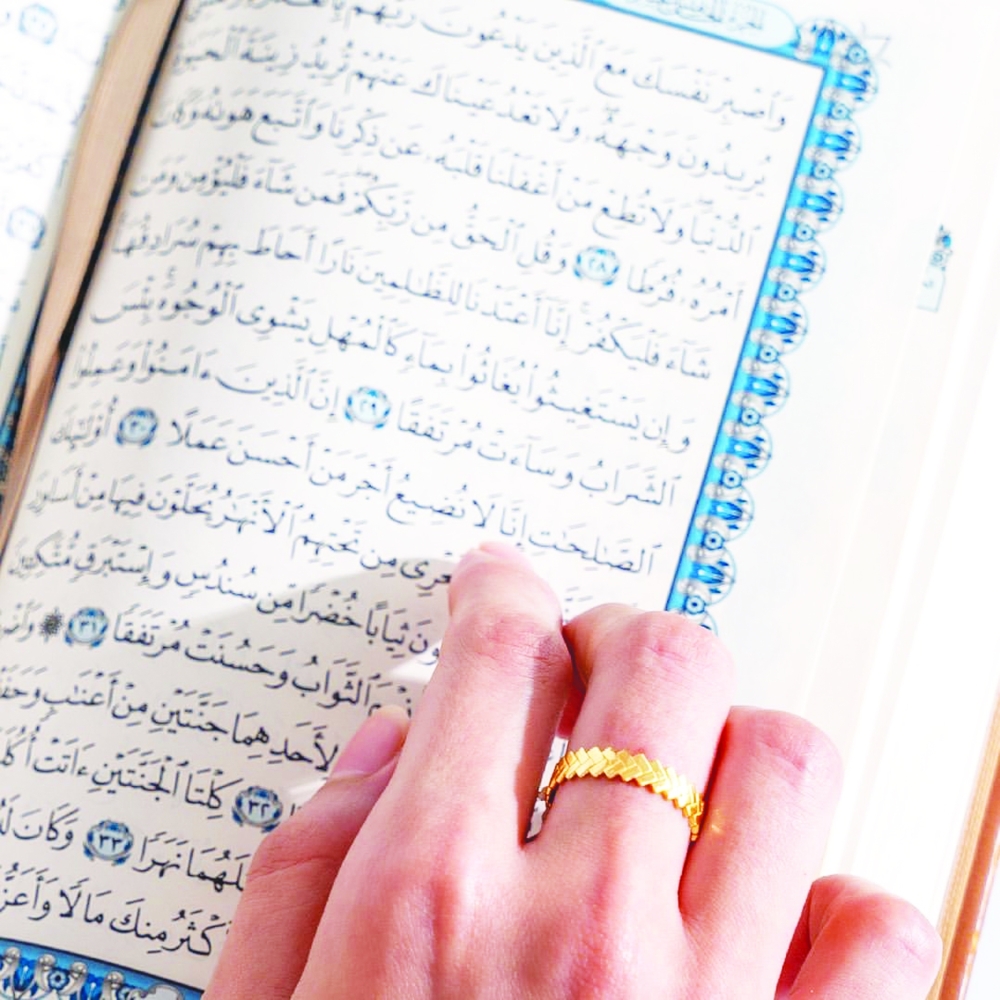 وَٱصْبِرْ نَفْسَكَ مَعَ ٱلَّذِينَ يَدْعُونَ رَبَّهُم
يُرِيدُونَ وَجْهَهُۥ وَلَا تَعْدُ عَيْنَاكَ عَنْهُمْ تُرِيدُ زِينَةَ ٱلْحَيَوٰةِ
ٱلدُّنْيَا وَلَا تُطِعْ مَنْ أَغْفَلْنَا قَلْبَهُۥ عَن ذِكْرِنَا وَٱتَّبَعَ هَوَىٰهُ وَكَانَ
أَمْرُهُۥ فُرُطًا ٢٨ وَقُلِ ٱلْحَقُّ مِن رَّبِّكُمْ فَمَن شَآءَ فَلْيُؤْمِن وَمَن
شَآءَ فَلْيَكْفُرْ إِنَّآ أَعْتَدْنَا لِلظَّـٰلِمِينَ نَارًا أَحَاطَ بِهِمْ سُرَادِقُهَا
وَإِن يَسْتَغِيثُوا۟ يُغَاثُوا۟ بِمَآءٍ كَٱلْمُهْلِ يَشْوِى ٱلْوُجُوهَ بِئْسَ
ٱلشَّرَابُ وَسَآءَتْ مُرْتَفَقًا ٢٩ إِنَّ ٱلَّذِينَ ءَامَنُوا۟ وَعَمِلُوا۟
ٱلصَّـٰلِحَـٰتِ إِنَّا لَا نُضِيعُ أَجْرَ مَنْ أَحْسَنَ عَمَلًا ٣٠ أُو۟لَـٰٓئِكَ
مِن تَحْتِهِمُ ٱلْأَنْهَـٰرُ يُحَلَّوْنَ فِيهَا مِنْ أَسَاوِرَ
ثِيَابًا خُضْرًا مِّن سُندُسٍ وَإِسْتَبْرَقٍ مُّتَّكِـِٔينَ
ٱلثَّوَابُ وَحَسُنَتْ مُرْتَفَقًا ٣١
لِأَحَدِهِمَا جَنَّتَيْنِ مِنْ أَعْنَـٰبٍ
٣٢ كِلْتَا ٱلْجَنَّتَيْنِ ءَاتَتْ
نَهَرًا ٣٣ وَكَانَ
مِنكَ مَالًا وَأَعَزُّ